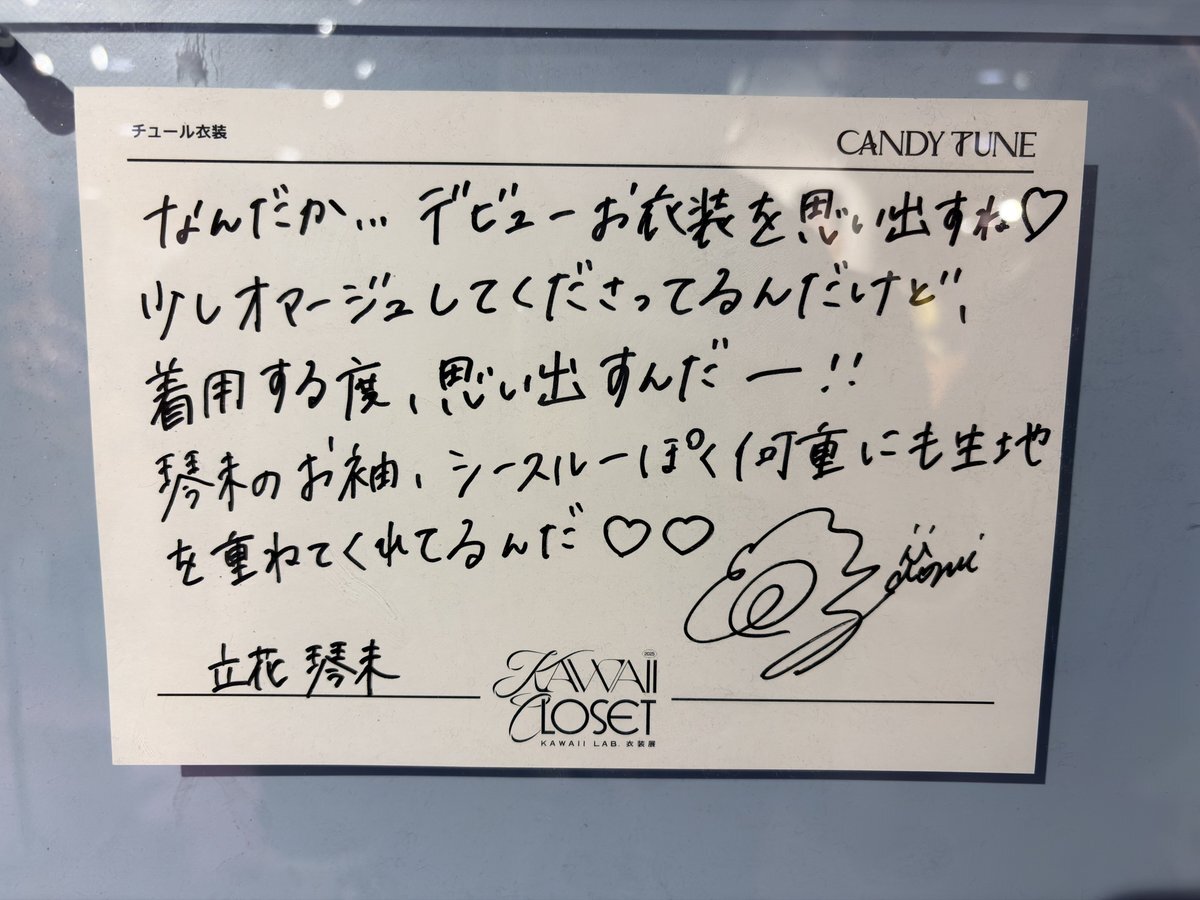 チュール衣装
CANDY TUNE
なんだか... デビューお衣装を思い出すね♡
少しオマージュしてくださってるんだけど、
着用する度、思い出すんだー!!
琴未のお袖、シースルーぽく何重にも生地
を重ねてくれてるんだ♡♡
立花 琴未
2025
KAWAII
CLOSET
KAWAII LAB. 衣装展